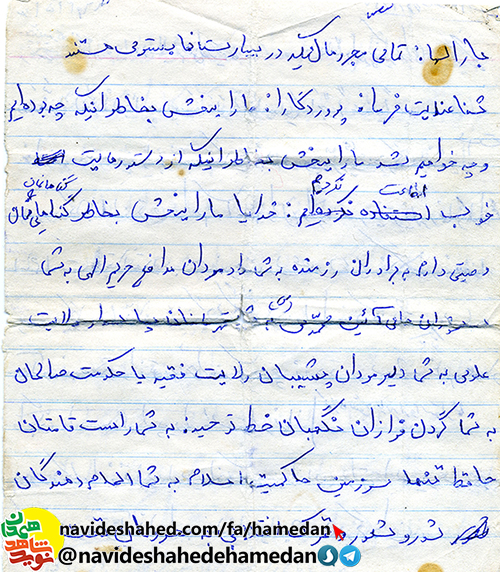 تمامی مجروحان که در بیمارستانها بستری هستند
شفا عنایت فرما: پروردگارا: ما را ببخش بخاطر اینکه چه بوده‌ایم
و چه خواهیم شد ما را ببخش بخاطر اینکه از ولایت
خوب اطاعت نکردیم: خدایا ما را ببخش بخاطر گناهانمان
وصیتی دارم به برادران رزمنده به شما دلاورمردان مدافع حریم الهی به شما
آئین محمدی (ص) به شما پاسداران ولایت
علوی به شما دلیرمردان پشتیبان ولایت فقیه یا حکومت صالحان
به شما گردن فرازان نگهبان خط توحید: به شما راست قامتان
حافظ تنها سرزمین حاکمیت اسلام به شما الهام دهندگان
شور و شعور و
navideshahed.com/fa/hamedan
@navideshahedehamedan
نوید شاهد همدان